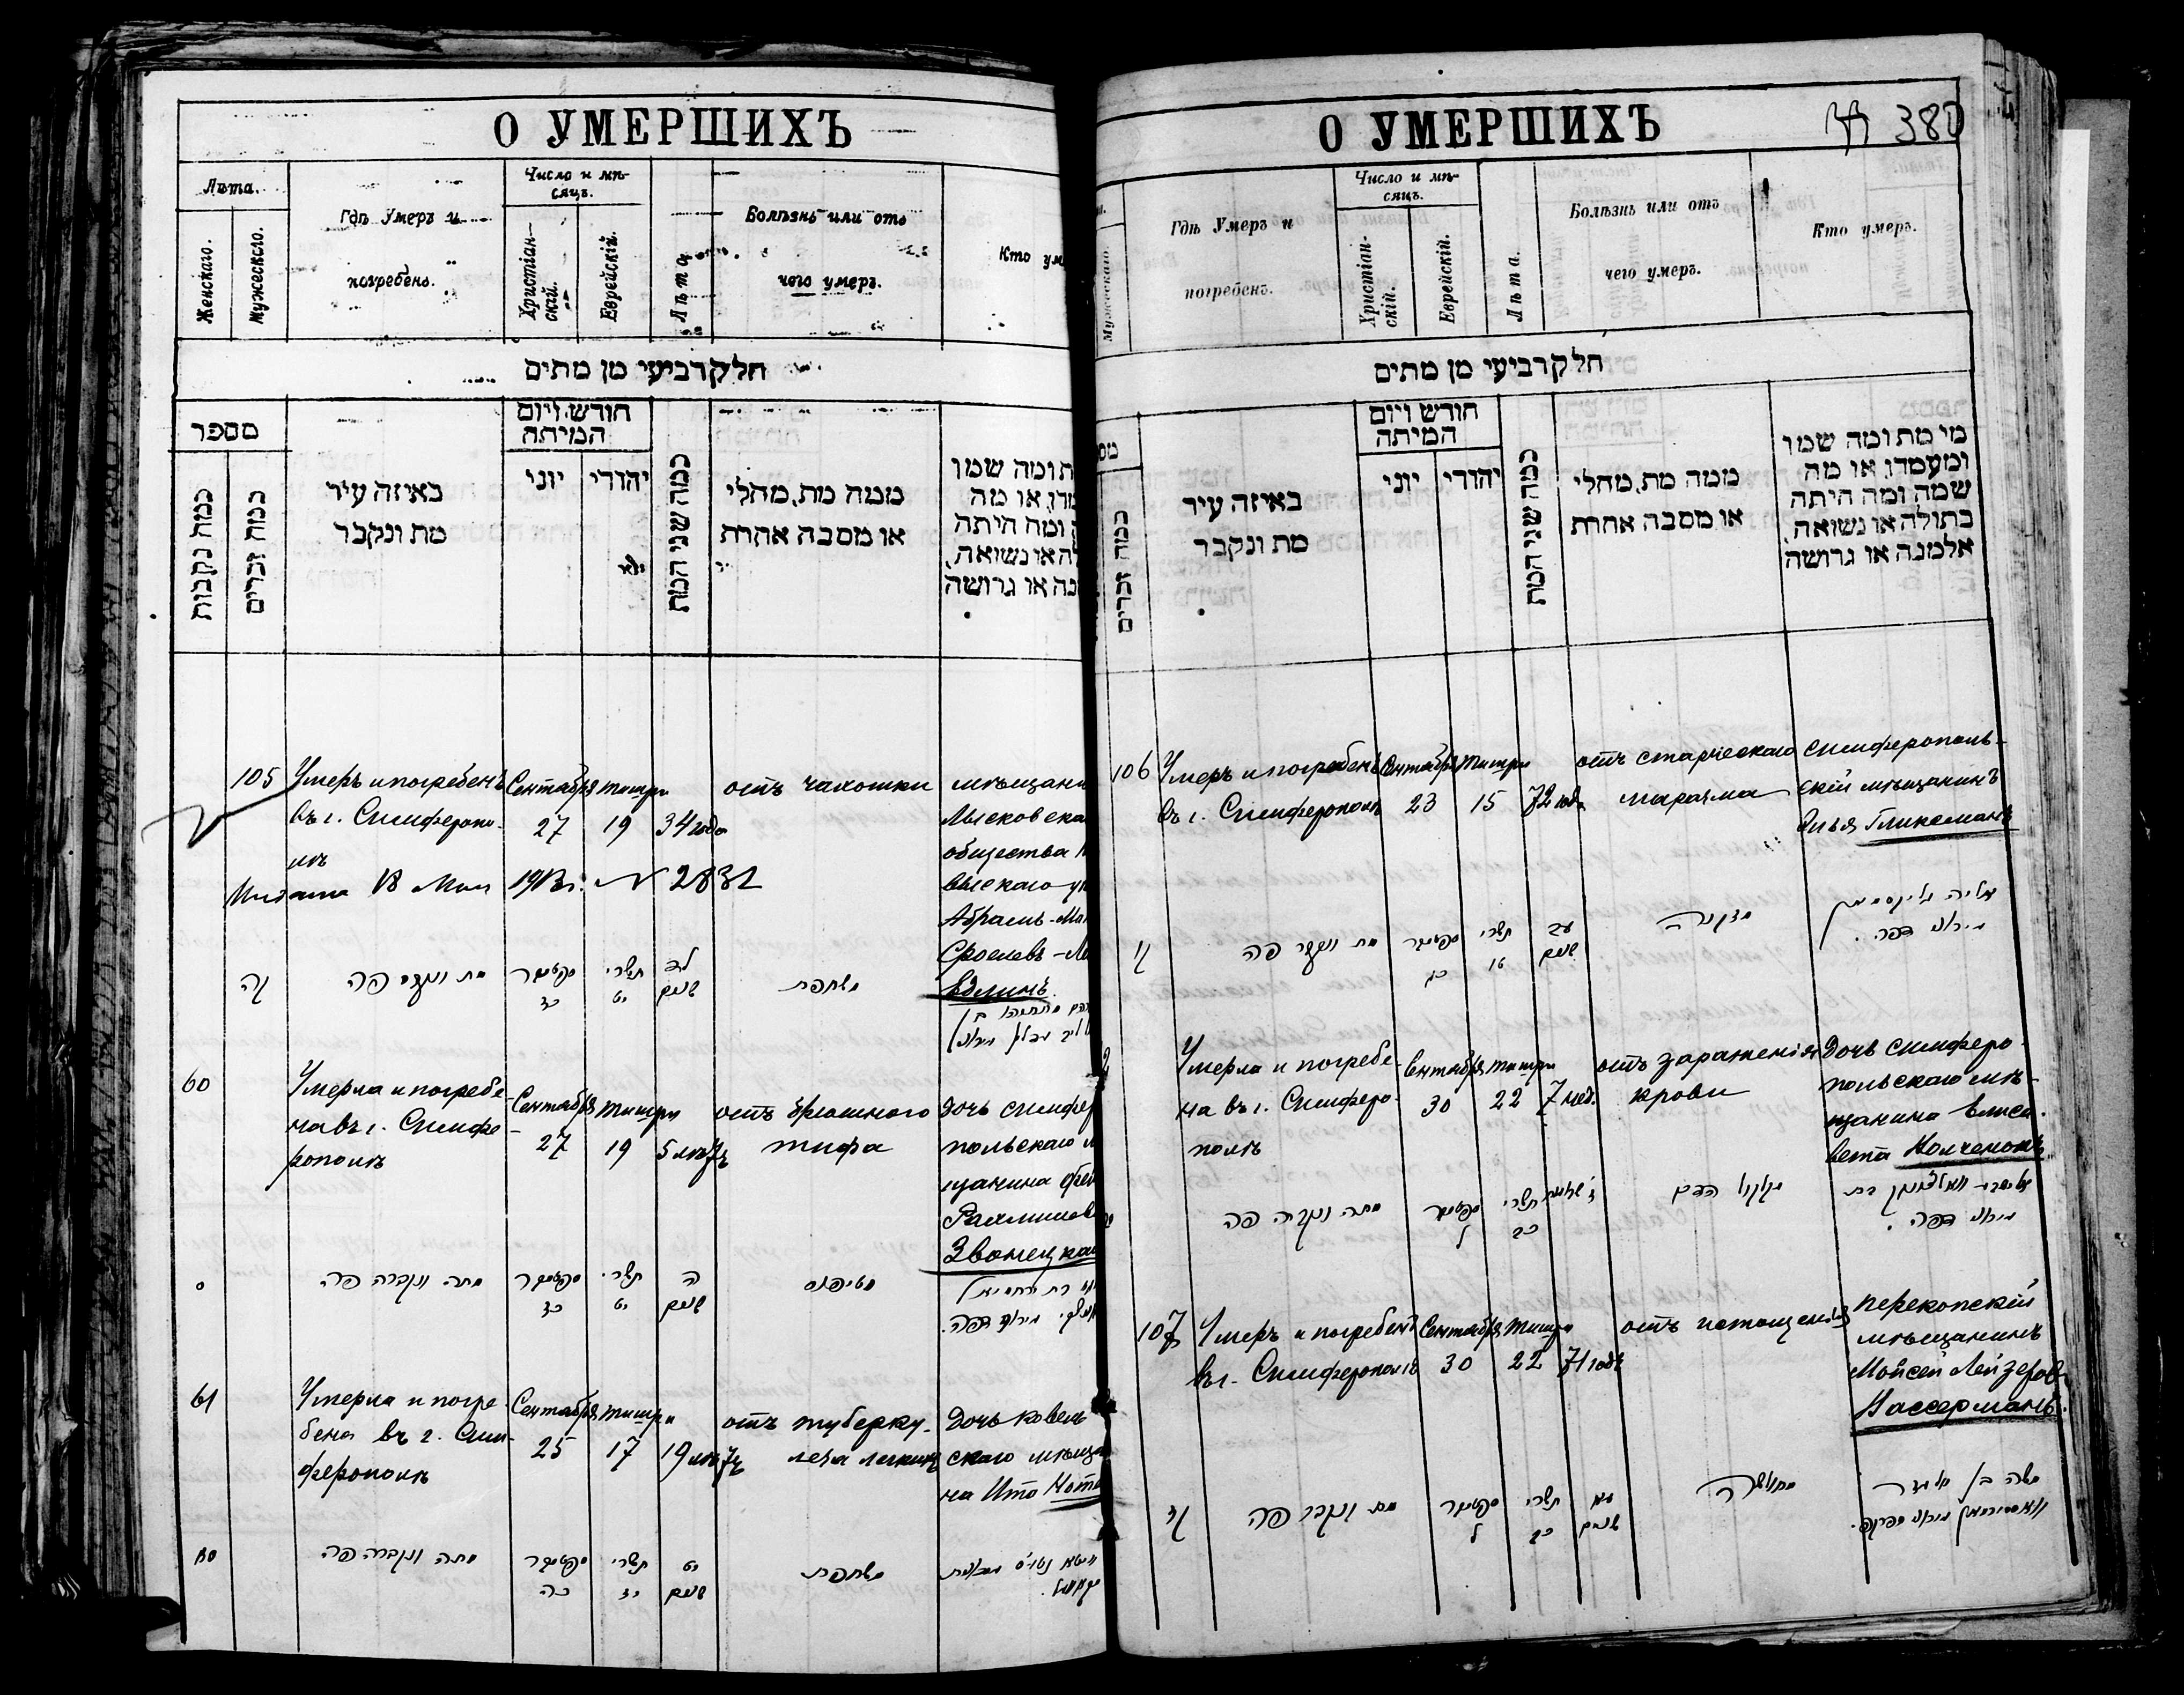 О УМЕРШИХЪ
Лѣта.
Женскаго.
Мужескло.
Гдѣ Умеръ и
погребенъ.
Число и мѣ-
сяцъ.
Христіан-
скій.
Еврейскій.
Лѣта
Болѣзнь или отъ
чего умеръ.
Кто ум
חלק רביעי מן מתים
מספר
כמה נקבות
כמה זכרים
באיזה עיר
מת ונקבר
חודש ויום
המיתה
יוני
יהודי
כמה שני המת
ממה מת, מחלי
או מסבה אחרת
ת ומה שמו
מדו, או מה
ומה היתה
לה או נשואה,
נה או גרושה
105
Умеръ и погребенъ
въ г. Симферопо-
лѣ
Сентября
27
Тишри
19
34 года
отъ чахотки
мѣщани
общества
Абрамъ-
вдлинъ.
Мая
№ 2832
קה
מת ונקבר פה
ספטמבר
כז
תשרי
יט
לד
שנים
משחפת
60
Умерла и погребе-
на въ г. Симфе-
рополѣ
Сентября
27
Тишри
19
5 лѣтъ
отъ брюшного
тифа
дочь симфер
польскаго м
щанина
Звонецкая
ס
מתה ונקברה פה
ספטמבר
כז
תשרי
יט
ה
שנים
מטיפוס
61
Умерла и погре-
бена въ г. Сим-
ферополѣ
Сентября
25
Тишри
17
19 лѣтъ
отъ туберку-
леза легкихъ
Дочь ковен
скаго мѣща
на Ита
סא
מתה ונקברה פה
ספטמבר
כה
תשרי
יז
יט
שנים
משחפת
О УМЕРШИХЪ
380
Мужескаго
Гдѣ Умеръ и
погребенъ.
Число и мѣ-
сяцъ.
Христіан-
скій.
Еврейскій.
Лѣта.
Болѣзнь или отъ
чего умеръ.
Кто умеръ.
חלק רביעי מן מתים
מס
כמה זכרים
באיזה עיר
מת ונקבר
חודש ויום
המיתה
יוני
יהודי
כמה שני המת
ממה מת, מחלי
או מסבה אחרת
מי מת ומה שמו
ומעמדו, או מה
שמה ומה היתה
בתולה או נשואה,
אלמנה או גרושה
106
Умеръ и погребенъ
въ г. Симферополѣ
Сентября
23
Тишри
15
72 года
отъ старческаго
маразма
симферополь-
скій мѣщанинъ
Илья Гликсманъ
קו
מת ונקבר פה
ספטמבר
כג
תשרי
טו
עב
שנים
מזקנה
אליה גליקסמן
Умерла и погребе-
на въ г. Симферо-
полѣ
Сентября
30
Тишри
22
7 нед.
отъ зараженія
крови
Дочь симферо-
польскаго мѣ-
щанина Елиса-
вета
מתה ונקברה פה
ספטמבר
ל
תשרי
כב
מקלקול הדם
107
Умеръ и погребенъ
въ г. Симферополѣ
Сентября
30
Тишри
22
71 годъ
отъ истощенія
Перекопскій
мѣщанинъ
Мойсей Лейзеров
Вассерманъ.
קז
מת ונקבר פה
ספטמבר
ל
תשרי
כב
עא
שנים
מחולשה
משה בן אליעזר